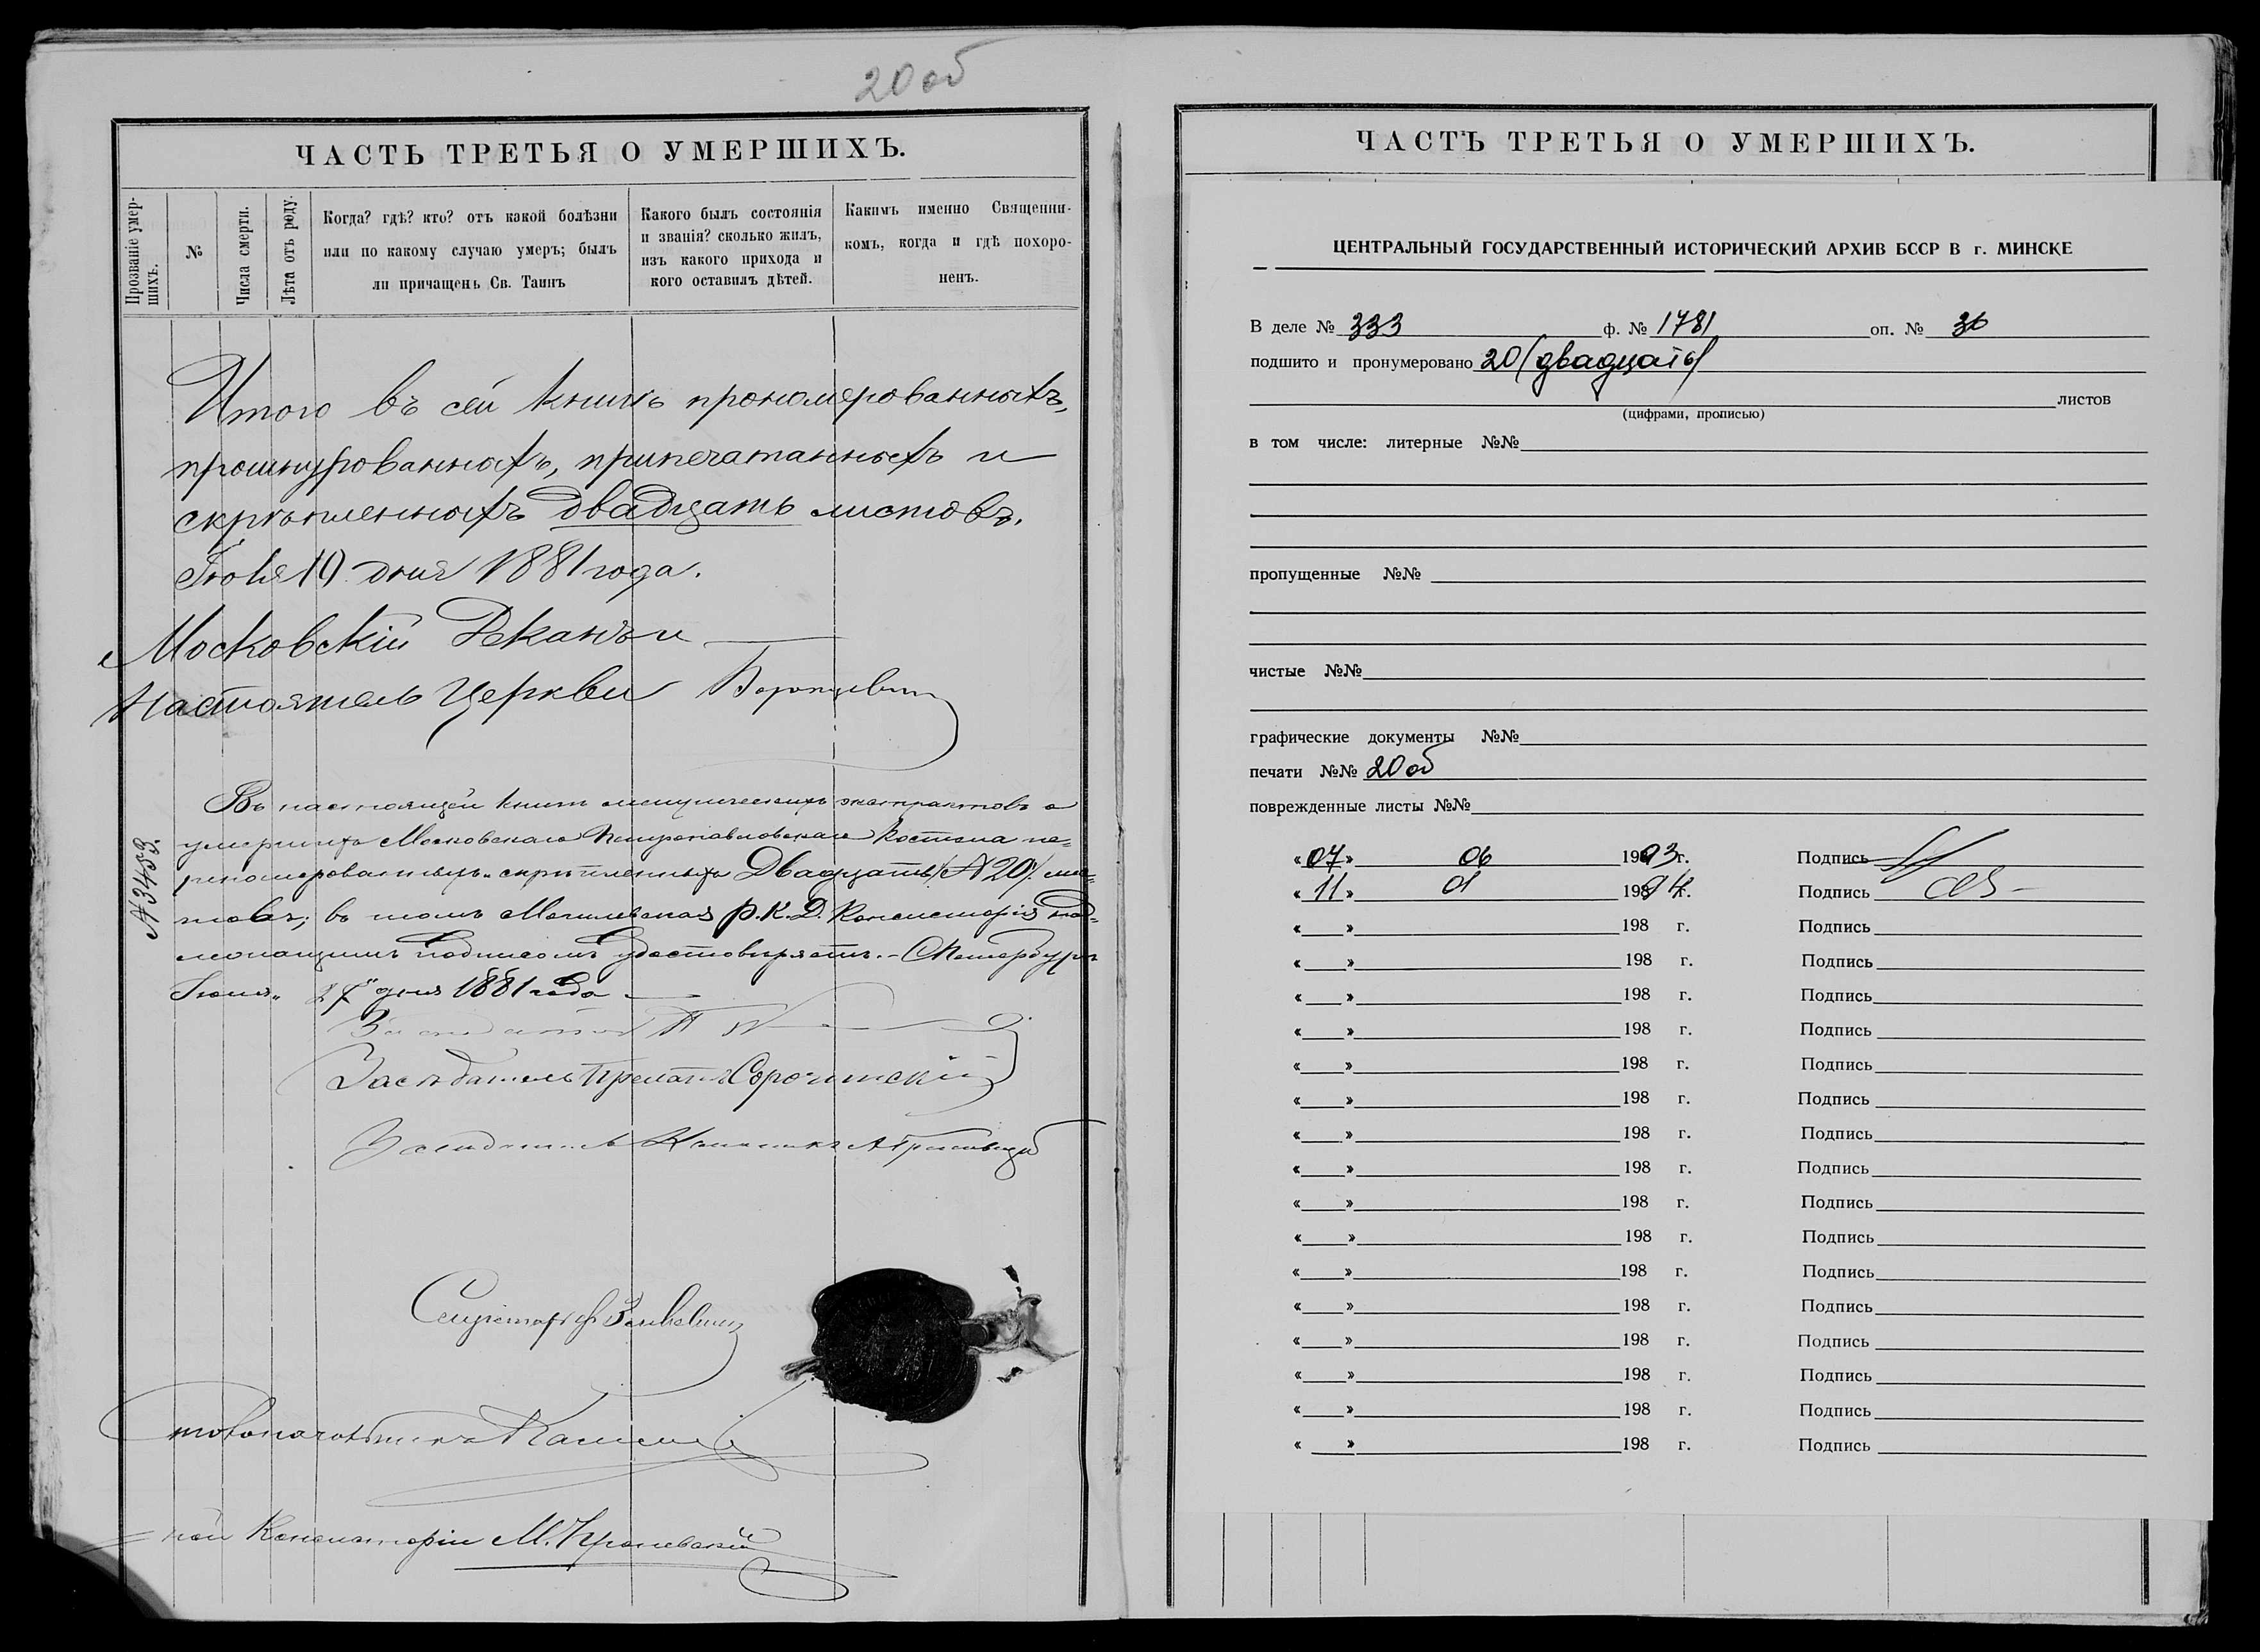 20 об
ЧАСТЬ ТРЕТЬЯ О УМЕРШИХЪ.
Прозваніе умер-
шихъ.
№
Числа смерти.
Лѣта отъ роду.
Когда? гдѣ? кто? отъ какой болѣзни
или по какому случаю умеръ; былъ
ли причащенъ Св. Таинъ
Какого былъ состоянія
и званія? сколько жилъ,
изъ какого прихода и
кого оставилъ дѣтей.
Какимъ именно Священни-
комъ, когда и гдѣ похоро-
ненъ.
Итого въ сей книгѣ прономерованныхъ,
прошнурованныхъ, припечатанныхъ и
скрѣпленныхъ двадцать листовъ.
19 дня 1881 года.
Московскій Деканъ и
Настоятель Церкви
№ 3483.
Въ настоящей книгѣ метрическихъ экстрактовъ о
умершихъ Московскаго Петропавловскаго Костела пе-
реномерованныхъ и скрѣпленныхъ Двадцать /№ 20/ лис-
товъ; въ томъ Могилевская Р. К. Д. Консисторія над-
лежащимъ подписомъ удостовѣряетъ. - СПетербургъ
27 дня 1881 года
Засѣдатель
Засѣдатель Прелатъ Сорочинскій
Засѣдатель Каноникъ
Секретарь
Столоначальникъ
Консисторіи М.
ЧАСТЬ ТРЕТЬЯ О УМЕРШИХЪ.
ЦЕНТРАЛЬНЫЙ ГОСУДАРСТВЕННЫЙ ИСТОРИЧЕСКИЙ АРХИВ БССР В г. МИНСКЕ
В деле № 333 ф. № 1781 оп. № 36
подшито и пронумеровано 20 (двадцать)
листов
(цифрами, прописью)
в том числе: литерные №№
пропущенные №№
чистые №№
графические документы №№
печати №№ 20 об
поврежденные листы №№
« 07 » 06 1993 г. Подпись
« 11 » 01 1994 г. Подпись
« » 198 г. Подпись
« » 198 г. Подпись
« » 198 г. Подпись
« » 198 г. Подпись
« » 198 г. Подпись
« » 198 г. Подпись
« » 198 г. Подпись
« » 198 г. Подпись
« » 198 г. Подпись
« » 198 г. Подпись
« » 198 г. Подпись
« » 198 г. Подпись
« » 198 г. Подпись
« » 198 г. Подпись
« » 198 г. Подпись
« » 198 г. Подпись